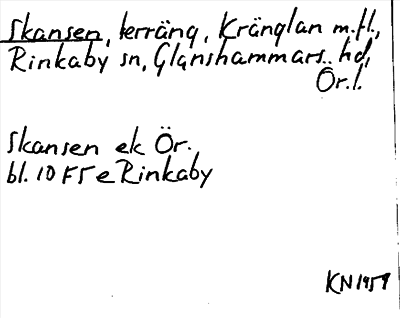 Skansen, terräng, Kränglan m.fl.,
Rinkaby sn, Glanshammars hd,
Ör.l.
Skansen ek Ör.
bl. 10 F5e Rinkaby
KN 1959